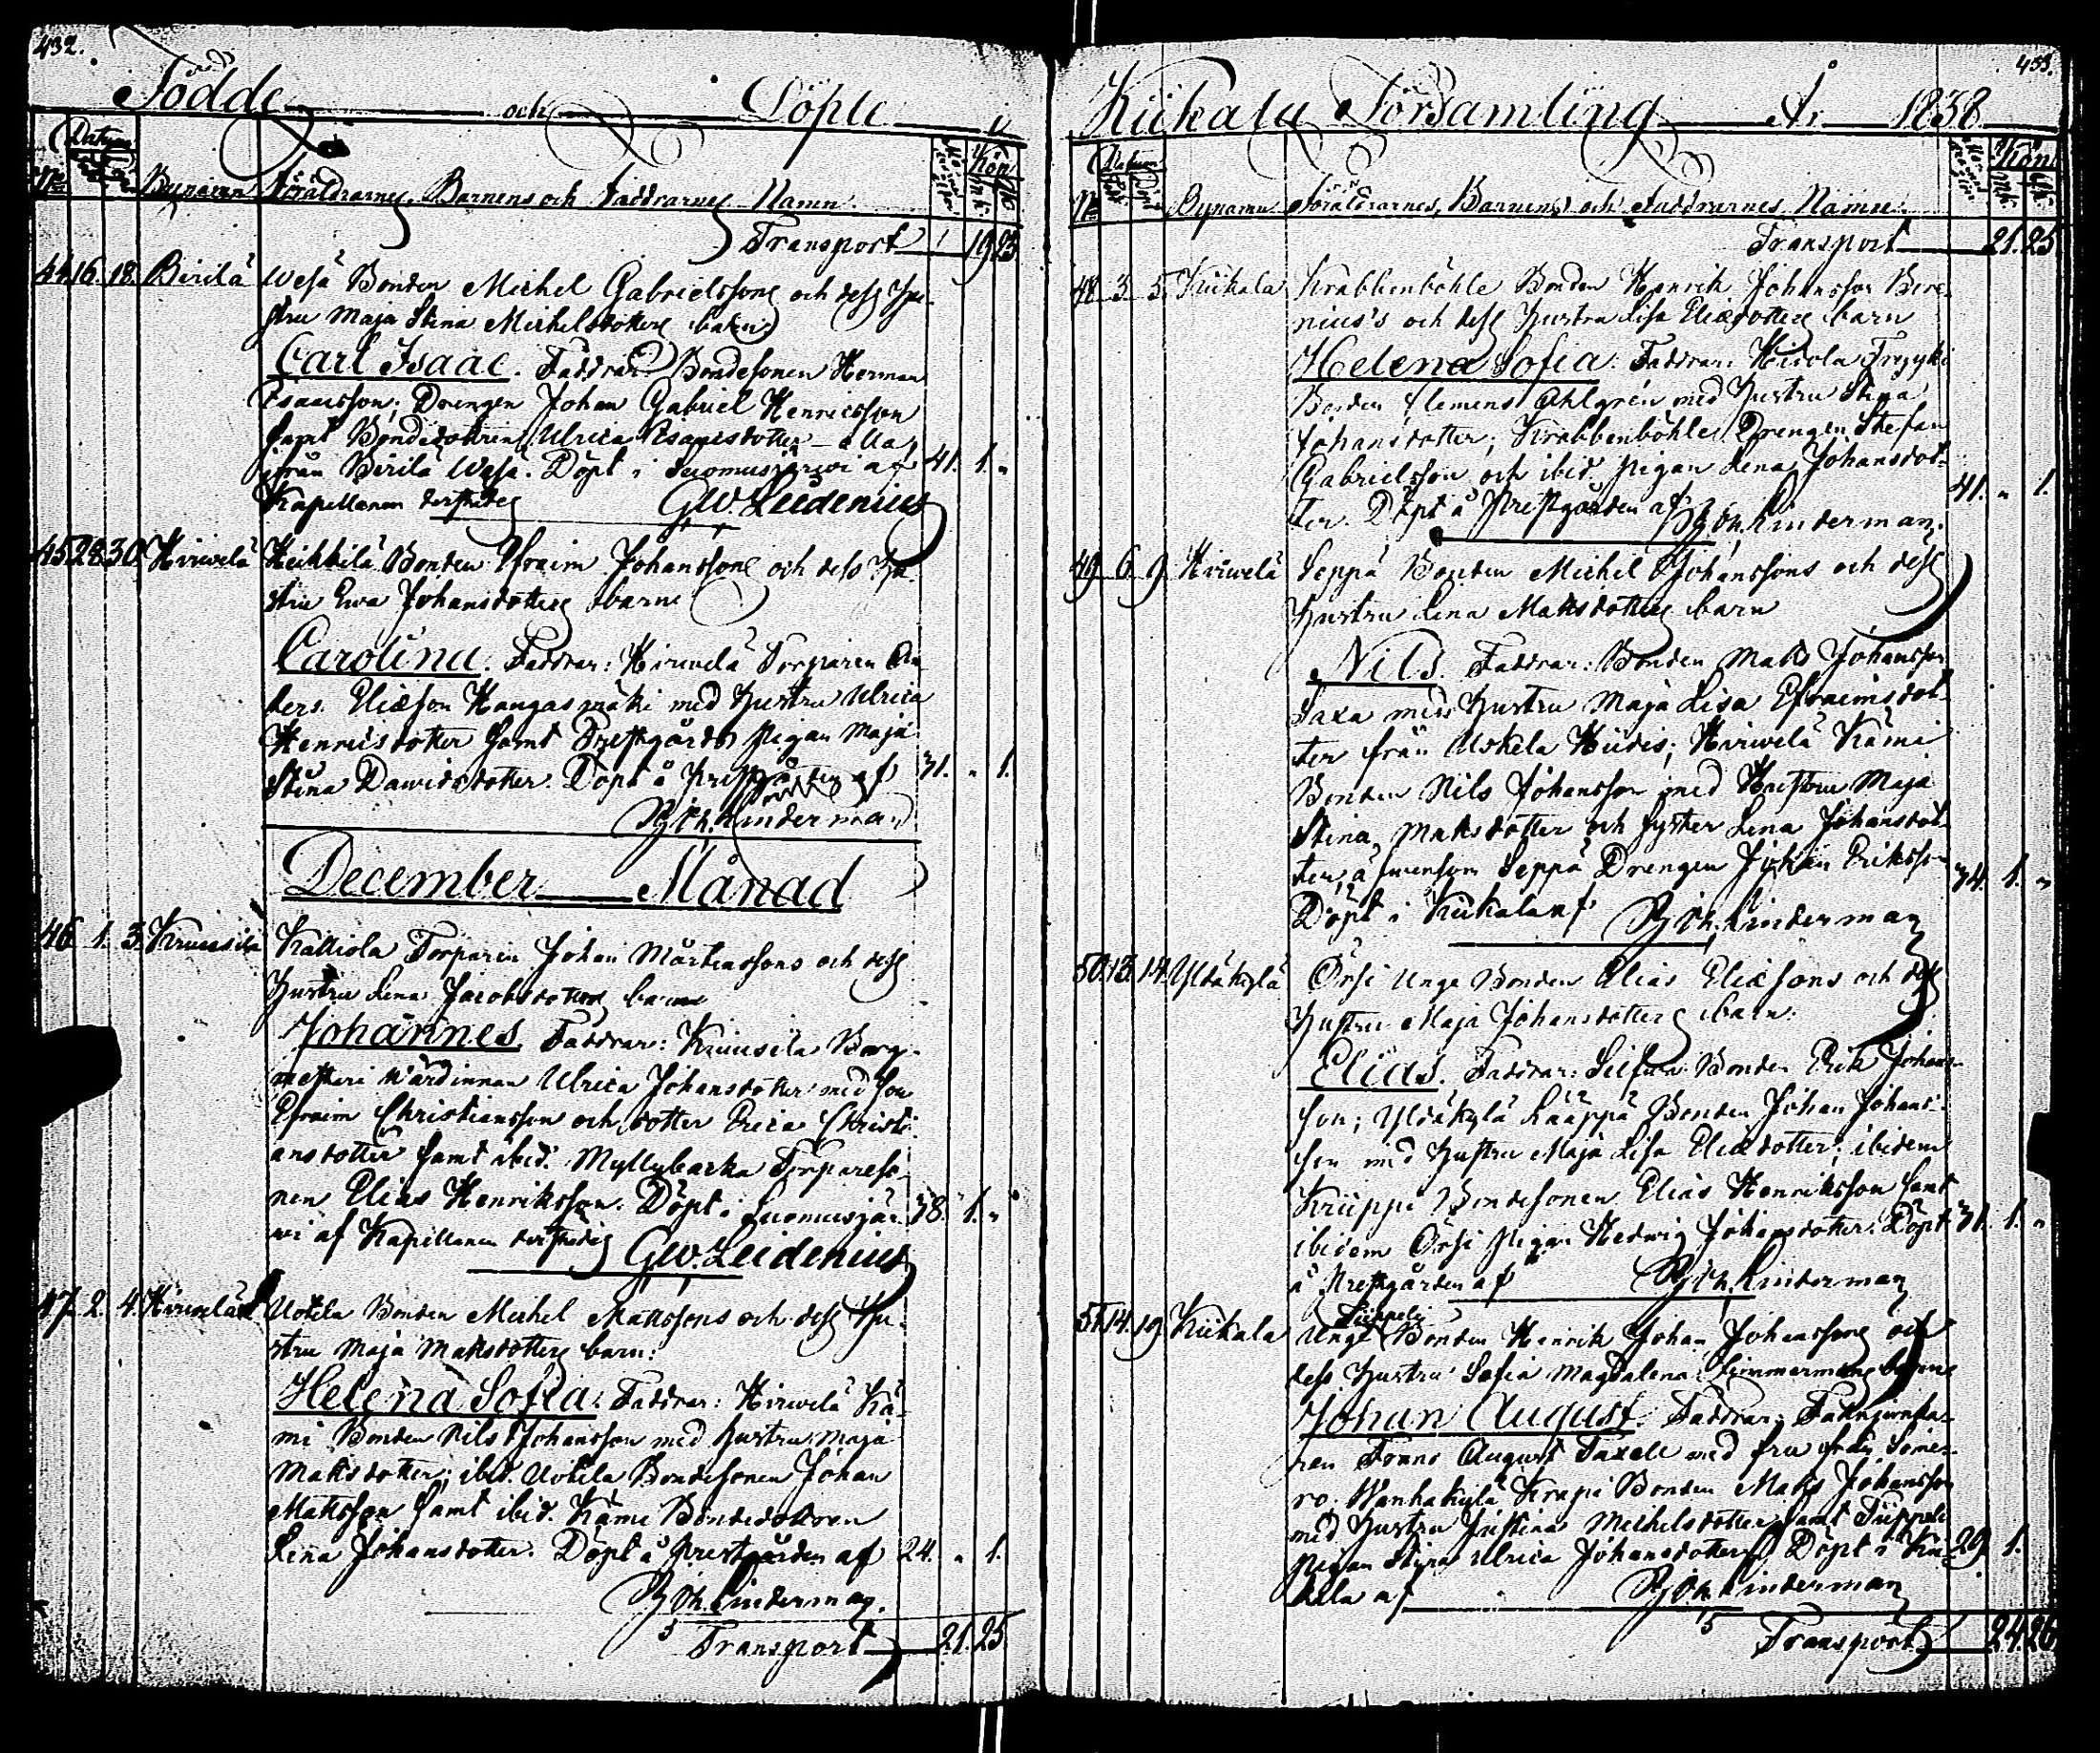 432.
Födde och Döpte i
No Datum Bynamn Föräldrarnes, Barnens och Faddrarnes Namn. Kön
Transport 19 23
44. 16. 18. Birilä Wesä Bonden Michel Gabrielssons och dess Hu-
stru Maja Stina Michelsdotters barn
Carl Isaac. Faddrar: Bondesonen Herman
Isaacsson; Drengen Johan Gabriel Henricsson
samt Bondedottren Ulrica Isaacsdotter alla
ifrån Birilä Wesä. Döpt i Suomusjärwi af 41. 1. "
Kapellanen derstädes G.W. Leidenius
45. 28. 30. Hirwelä Heikkilä Bonden Efraim Johanssons och dess Hu-
stru Ewa Johansdotters barn
Carolina. Faddrar: Hirwelä Torparen An-
ders Eliæson Kangasmäki med hustru Ulrica
Henricsdotter samt Prestgårds Pigan Maja
Stina Dawidsdotter. Döpt å Prestgården af 31. " 1.
Linderman
December Månad
46. 1. 3. Kruusila Kalliola Torparen Johan Mårtenssons och dess
Hustru Lena Jacobsdotters barn
Johannes. Faddrar: Kruusila Borg-
mesteri Wärdinnan Ulrica Johansdotter med son
Efraim Christiansson och dotter Erica Christi-
ansdotter samt ibid. Myllybacka Torpareso-
nen Elias Henriksson. Döpt i Suomusjär- 38. 1. "
wi af Kapellanen derstädes G.W. Leidenius
47. 2. 4. Hirwelä Uotila Bonden Michel Mattssons och dess Hu-
stru Maja Matsdotters barn:
Helena Sofia. Faddrar: Hirwelä Kä-
mi Bonden Nils Johansson med hustru Maja
Matsdotter; ibid. Uotila Bondesonen Johan
Mattsson samt ibid. Kämi Bondedottren
Lena Johansdotter. Döpt å Prestgården af 24. " 1.
Linderman.
Transport 21. 25
433.
Kiikala Församling År 1838
No Datum Bynamn Föräldrarnes, Barnens och Faddrarnes Namn. Kön
Transport 21. 25
48 3. 5. Kiikala Krabbenböhle Bonden Henrik Johansson Bere-
nius's och dess Hustru Lisa Eliædotters barn
Helena Sofia. Faddrar: Hirvola
Bonden Clemens Ahlgrén med Hustru Stina
Johansdotter; Krabbenböhle Drengen Stefan
Gabrielsson och ibid. Pigan Lena Johansdot-
ter. Döpt å Prestgården af 41. " 1.
Linderman.
49 6. 9. Hirwelä Seppä Bonden Michel Johanssons och dess
Hustru Lena Matsdotters barn
Nils. Faddrar: Bonden Matts Johansson
Saxa med Hustru Maja Lisa Efraimsdot-
ter från Uskela Hiidis; Hirwelä Kämi
Bonden Nils Johansson med Hustru Maja
Stina Matsdotter och syster Lena Johansdot-
ter, äfwensom Seppä Drengen Johan Eriksson 34. 1. "
Döpt i Kiikala af Linderman
50. 13. 14. Yltäkylä Örsi Unge Bonden Elias Eliæsons och dess
Hustru Maja Johansdotters barn.
Elias. Faddrar: Bonden Erik Johans-
son; Yltäkylä Lääppä Bonden Johan Johans-
son med Hustru Maja Lisa Eliædotter; ibidem
Bondesonen Elias Henriksson samt
ibidem Örsi Pigan Hedwig Johansdotter. Döpt 31. 1. "
å Prestgården af Linderman
51. 14. 19. Kiikala Unge Bonden Henrik Johan Johanssons och
dess Hustru Sofia Magdalena barn
Johan August. Faddrar:
Frans August Taxell med fru från Some-
ro. Wanhakylä Krapi Bonden Matts Johansson
med Hustru Justina Michelsdotter samt
Pigan Ulrica Johansdotter. Döpt i Kii- 29 1.
kala af Linderman
Transport 24. 26